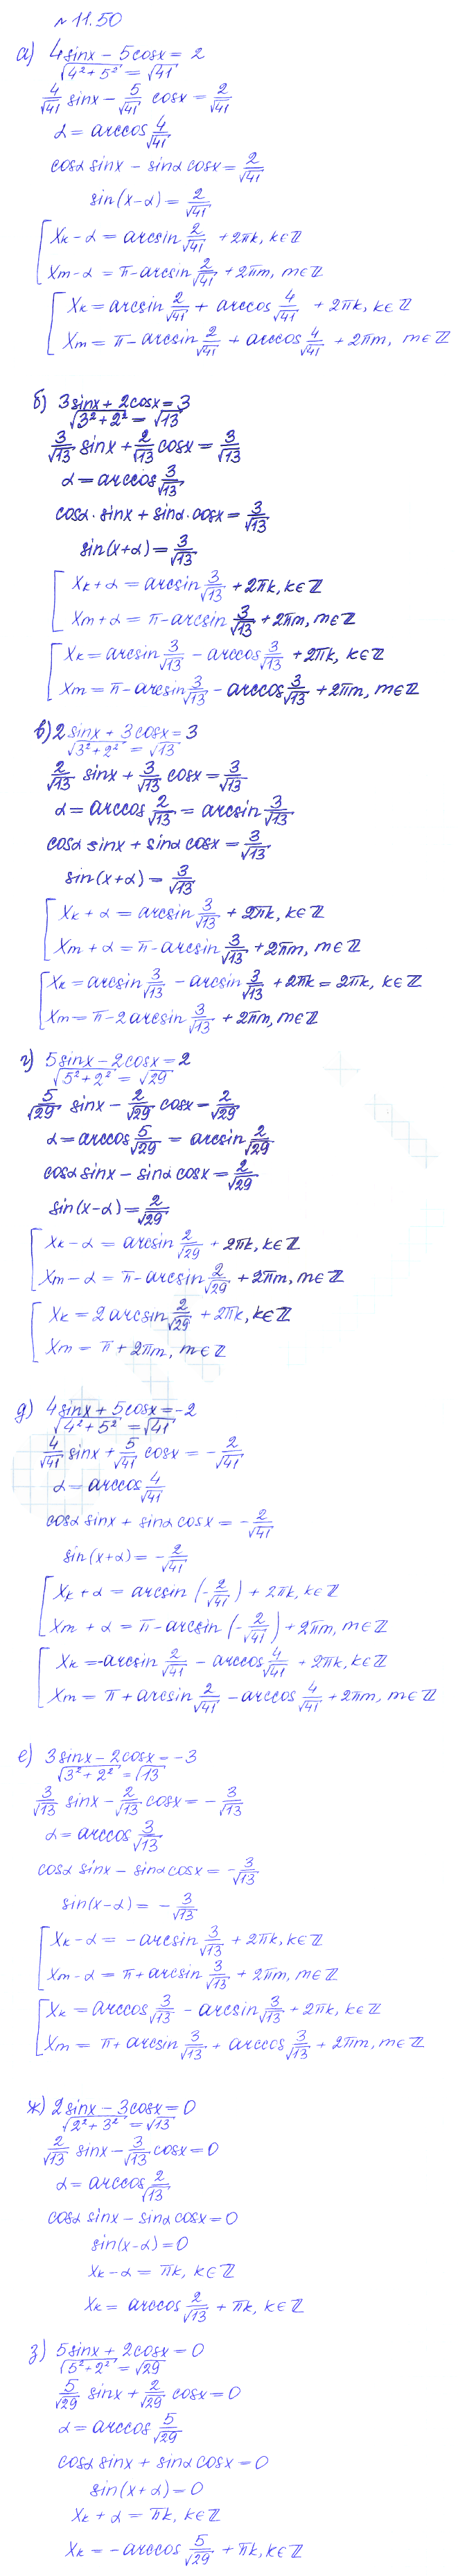 № 11.50
а) 4sinx − 5cosx = 2
√(4² + 5²) = √41
4/√41 sinx − 5/√41 cosx = 2/√41
α = arccos 4/√41
cosα sinx − sinα cosx = 2/√41
sin(x−α) = 2/√41
[ Xk − α = arcsin 2/√41 + 2πk, k∈ℤ
Xm − α = π − arcsin 2/√41 + 2πm, m∈ℤ
[ Xk = arcsin 2/√41 + arccos 4/√41 + 2πk, k∈ℤ
Xm = π − arcsin 2/√41 + arccos 4/√41 + 2πm, m∈ℤ
б) 3sinx + 2cosx = 3
√(3² + 2²) = √13
3/√13 sinx + 2/√13 cosx = 3/√13
α = arccos 3/√13
cosα · sinx + sinα · cosx = 3/√13
sin(x+α) = 3/√13
[ Xk + α = arcsin 3/√13 + 2πk, k∈ℤ
Xm + α = π − arcsin 3/√13 + 2πm, m∈ℤ
[ Xk = arcsin 3/√13 − arccos 3/√13 + 2πk, k∈ℤ
Xm = π − arcsin 3/√13 − arccos 3/√13 + 2πm, m∈ℤ
в) 2sinx + 3cosx = 3
√(3² + 2²) = √13
2/√13 sinx + 3/√13 cosx = 3/√13
α = arccos 2/√13 = arcsin 3/√13
cosα sinx + sinα cosx = 3/√13
sin(x+α) = 3/√13
[ Xk + α = arcsin 3/√13 + 2πk, k∈ℤ
Xm + α = π − arcsin 3/√13 + 2πm, m∈ℤ
[ Xk = arcsin 3/√13 − arcsin 3/√13 + 2πk = 2πk, k∈ℤ
Xm = π − 2arcsin 3/√13 + 2πm, m∈ℤ
г) 5sinx − 2cosx = 2
√(5² + 2²) = √29
5/√29 sinx − 2/√29 cosx = 2/√29
α = arccos 5/√29 = arcsin 2/√29
cosα sinx − sinα cosx = 2/√29
sin(x−α) = 2/√29
[ Xk − α = arcsin 2/√29 + 2πk, k∈ℤ
Xm − α = π − arcsin 2/√29 + 2πm, m∈ℤ
[ Xk = 2arcsin 2/√29 + 2πk, k∈ℤ
Xm = π + 2πm, m∈ℤ
д) 4sinx + 5cosx = −2
√(4² + 5²) = √41
4/√41 sinx + 5/√41 cosx = − 2/√41
α = arccos 4/√41
cosα sinx + sinα cosx = − 2/√41
sin(x+α) = − 2/√41
[ Xk + α = arcsin (− 2/√41) + 2πk, k∈ℤ
Xm + α = π − arcsin (− 2/√41) + 2πm, m∈ℤ
[ Xk = −arcsin 2/√41 − arccos 4/√41 + 2πk, k∈ℤ
Xm = π + arcsin 2/√41 − arccos 4/√41 + 2πm, m∈ℤ
е) 3sinx − 2cosx = −3
√(3² + 2²) = √13
3/√13 sinx − 2/√13 cosx = − 3/√13
α = arccos 3/√13
cosα sinx − sinα cosx = − 3/√13
sin(x−α) = − 3/√13
[ Xk − α = − arcsin 3/√13 + 2πk, k∈ℤ
Xm − α = π + arcsin 3/√13 + 2πm, m∈ℤ
[ Xk = arccos 3/√13 − arcsin 3/√13 + 2πk, k∈ℤ
Xm = π + arcsin 3/√13 + arccos 3/√13 + 2πm, m∈ℤ
ж) 2sinx − 3cosx = 0
√(2² + 3²) = √13
2/√13 sinx − 3/√13 cosx = 0
α = arccos 2/√13
cosα sinx − sinα cosx = 0
sin(x−α) = 0
Xk − α = πk, k∈ℤ
Xk = arccos 2/√13 + πk, k∈ℤ
з) 5sinx + 2cosx = 0
√(5² + 2²) = √29
5/√29 sinx + 2/√29 cosx = 0
α = arccos 5/√29
cosα sinx + sinα cosx = 0
sin(x+α) = 0
Xk + α = πk, k∈ℤ
Xk = − arccos 5/√29 + πk, k∈ℤ